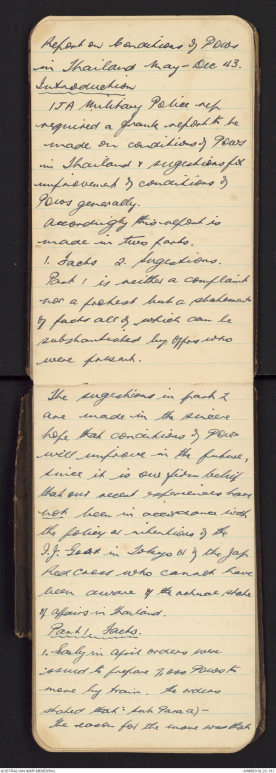 Report on Conditions of POWs
in Thailand May-Dec 43.
Introduction
IJA Military Police rep
required a frank report to be
made on conditions of POWs
in Thailand & sugestions for
improvement of conditions of
POWs generally.
Accordingly this report is
made in two parts.
1. Facts 2. Sugestions.
Part 1 is neither a complaint
nor a protest but a statement
of facts all of which can be
substantiated by offrs who
were present.
The sugestions in part 2
are made in the sincere
hope that conditions of POWs
will improve in the future,
since it is our firm belief
that our recent experiences have
not been in accordance with
the policy or intentions of the
I.J. in Tokyo or of the Jap
Red Cross who cannot have
been aware of the actual state
of affairs in Thailand.
Part 1. Facts.
1. Early in April orders were
issued to prepare 7,000 POWs to
move by train. The orders
stated that: sub Para a) -
The reason for the move was that
AUSTRALIAN WAR MEMORIAL